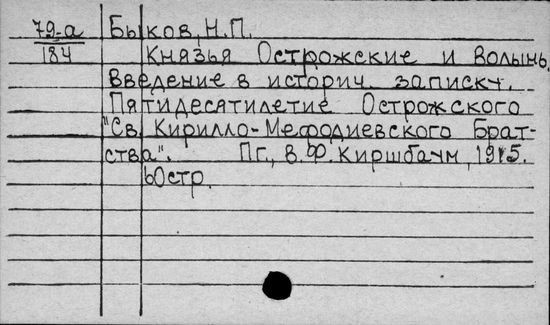 79-а Быков, Н.П.
184 Князья Острожские и Волынь.
Введение в историч. записку.
Пятидесятилетие Острожского
"Св. Кирилло-Мефодиевского Брат-
ства". Пг., В.Ф. Киршбаум, 1915.
60стр.